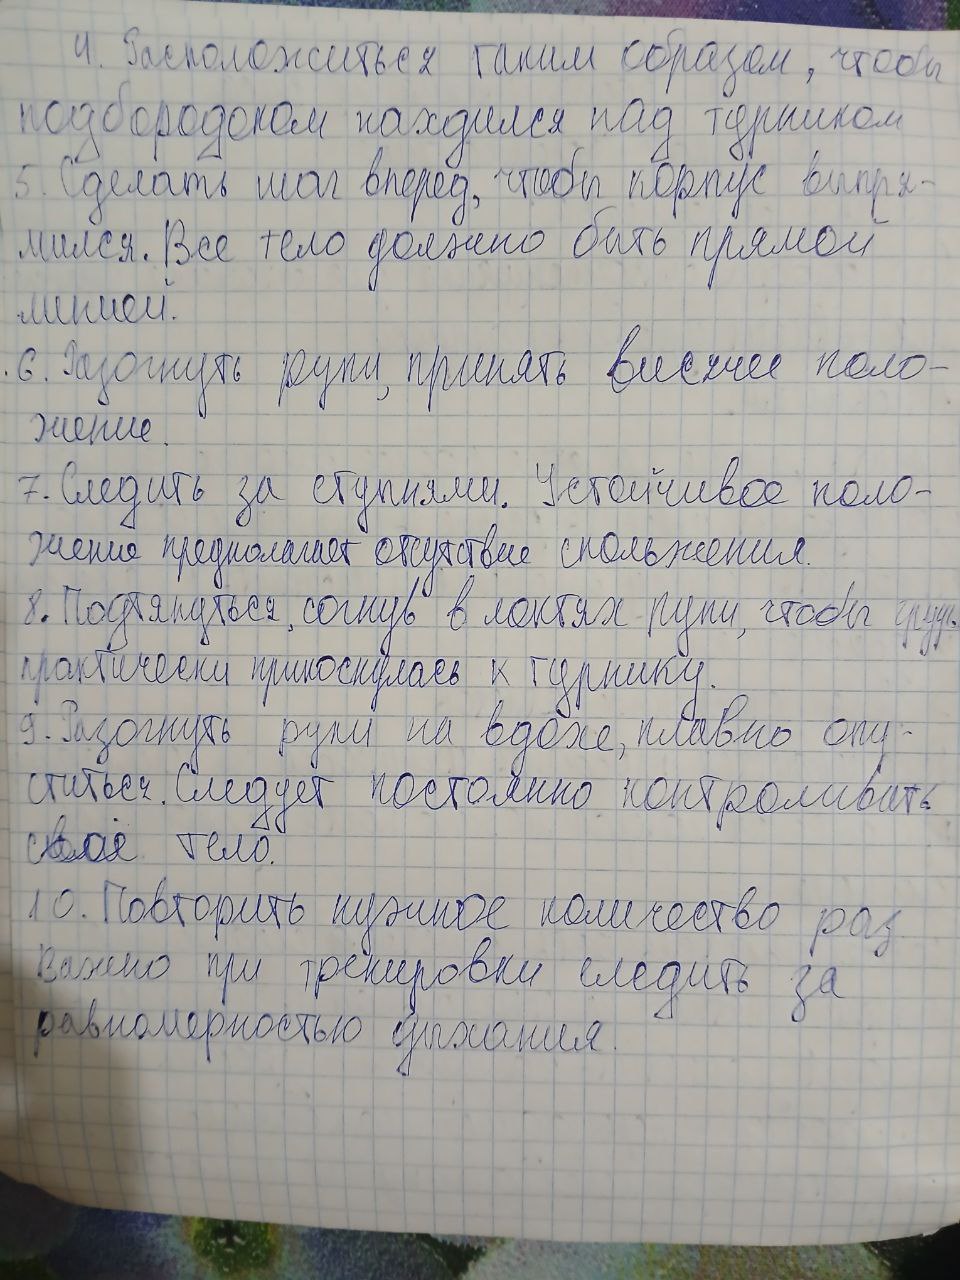 4. Расположиться таким образом, чтобы
подбородоком находился над турником
5. Сделать шаг вперед, чтобы корпус выпря-
мился. Все тело должно быть прямой
линией.
6. Разогнуть руки, принять висячее поло-
жение.
7. Следить за ступнями. Устойчивое поло-
жение предполагает отсутствие скольжения.
8. Подтянуться, согнув в локтях руки, чтобы грудь
практически прикоснулась к турнику.
9. Разогнуть руки на вдохе, плавно опу-
ститься. Следует постоянно контроливать
своё тело.
10. Повторить нужное количество раз
Важно при тренировки следить за
равномерностью дыхания.